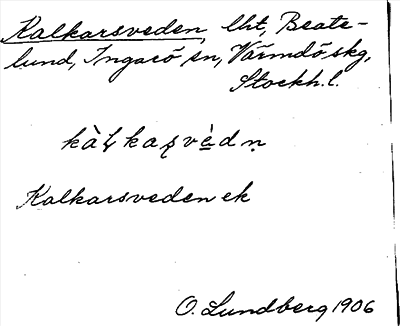 Kalkarsveden, lht, Beate-
lund, Ingarö sn, Värmdö skg,
Stockh. l.
kàl̥kaʂvèdṇ
Kalkarsveden ek
O. Lundberg 1906